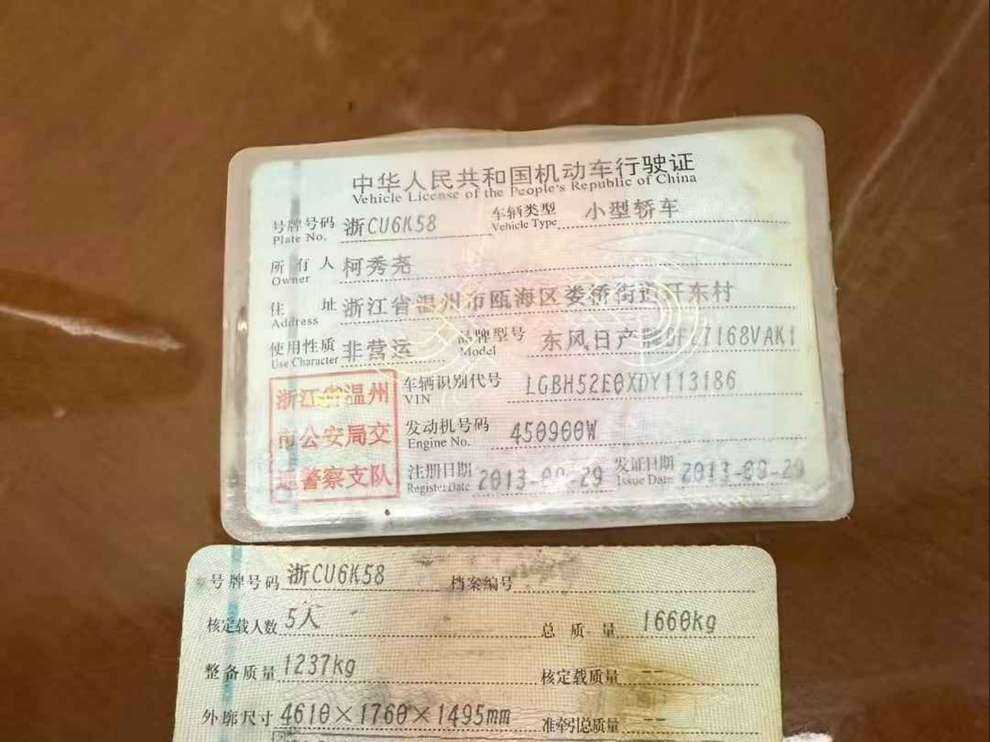 中华人民共和国机动车行驶证
Vehicle License of the People's Republic of China
号牌号码 浙CU6K58 车辆类型 小型轿车
Plate No. Vehicle Type
所有人 柯秀尧
Owner
住址 浙江省温州市瓯海区娄桥街道开东村
Address
使用性质 非营运 品牌型号 东风日产牌DFL7168VAK1
Use Character Model
浙江省温州
市公安局交
通警察支队
车辆识别代号 LGBH52E0XDY113186
VIN
发动机号码 450960W
Engine No.
注册日期 2013-08-29 发证日期 2013-08-29
Register Date Issue Date
号牌号码 浙CU6K58 档案编号
核定载人数 5人 总质量 1660kg
整备质量 1237kg 核定载质量 --
外廓尺寸 4610×1760×1495mm 准牵引总质量 --